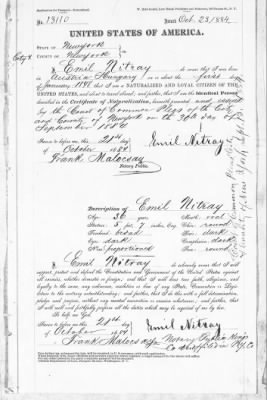 No. 13110 Issued Oct. 23/1884
UNITED STATES OF AMERICA.
STATE OF New York
COUNTY OF New York
I, Emil Nitray do swear that I was born
in Austria Hungary on or about the first day
of January 18 that I am a NATURALIZED AND LOYAL CITIZEN OF THE
UNITED STATES, and about to travel abroad; and further, that I am the Identical Person
described in the Certificate of Naturalization, herewith presented and issued
by the Court of Common Pleas of the City
and County of New York on the 30th day of
September 188
Sworn to before me, this 21st day
of October 1884 Emil Nitray
Frank Malocsay
Notary Public.
Description of Emil Nitray
Age: 36 years Mouth: oval
Stature: 5 feet, 7 inches, Eng. Chin: round
Forehead: broad Hair: dark
Eyes: dark Complexion: dark
Nose: proportioned Face: round
I, Emil Nitray do solemnly swear that I will
support, protect and defend the Constitution and Government of the United States against
all enemies, whether domestic or foreign; and that I will bear true faith, allegiance, and
loyalty to the same, any ordinance, resolution or law of any State, Convention or Legislature
to the contrary notwithstanding; and further, that I do this with a full determination,
pledge and purpose, without any mental reservation or evasion whatsoever; and further, that
I will well and faithfully perform all the duties which may be required of me by law.
So help me God.
Sworn to before me, this 21st day
of October 1884 Emil Nitray
Frank Malocsay Notary Public Kings
Co